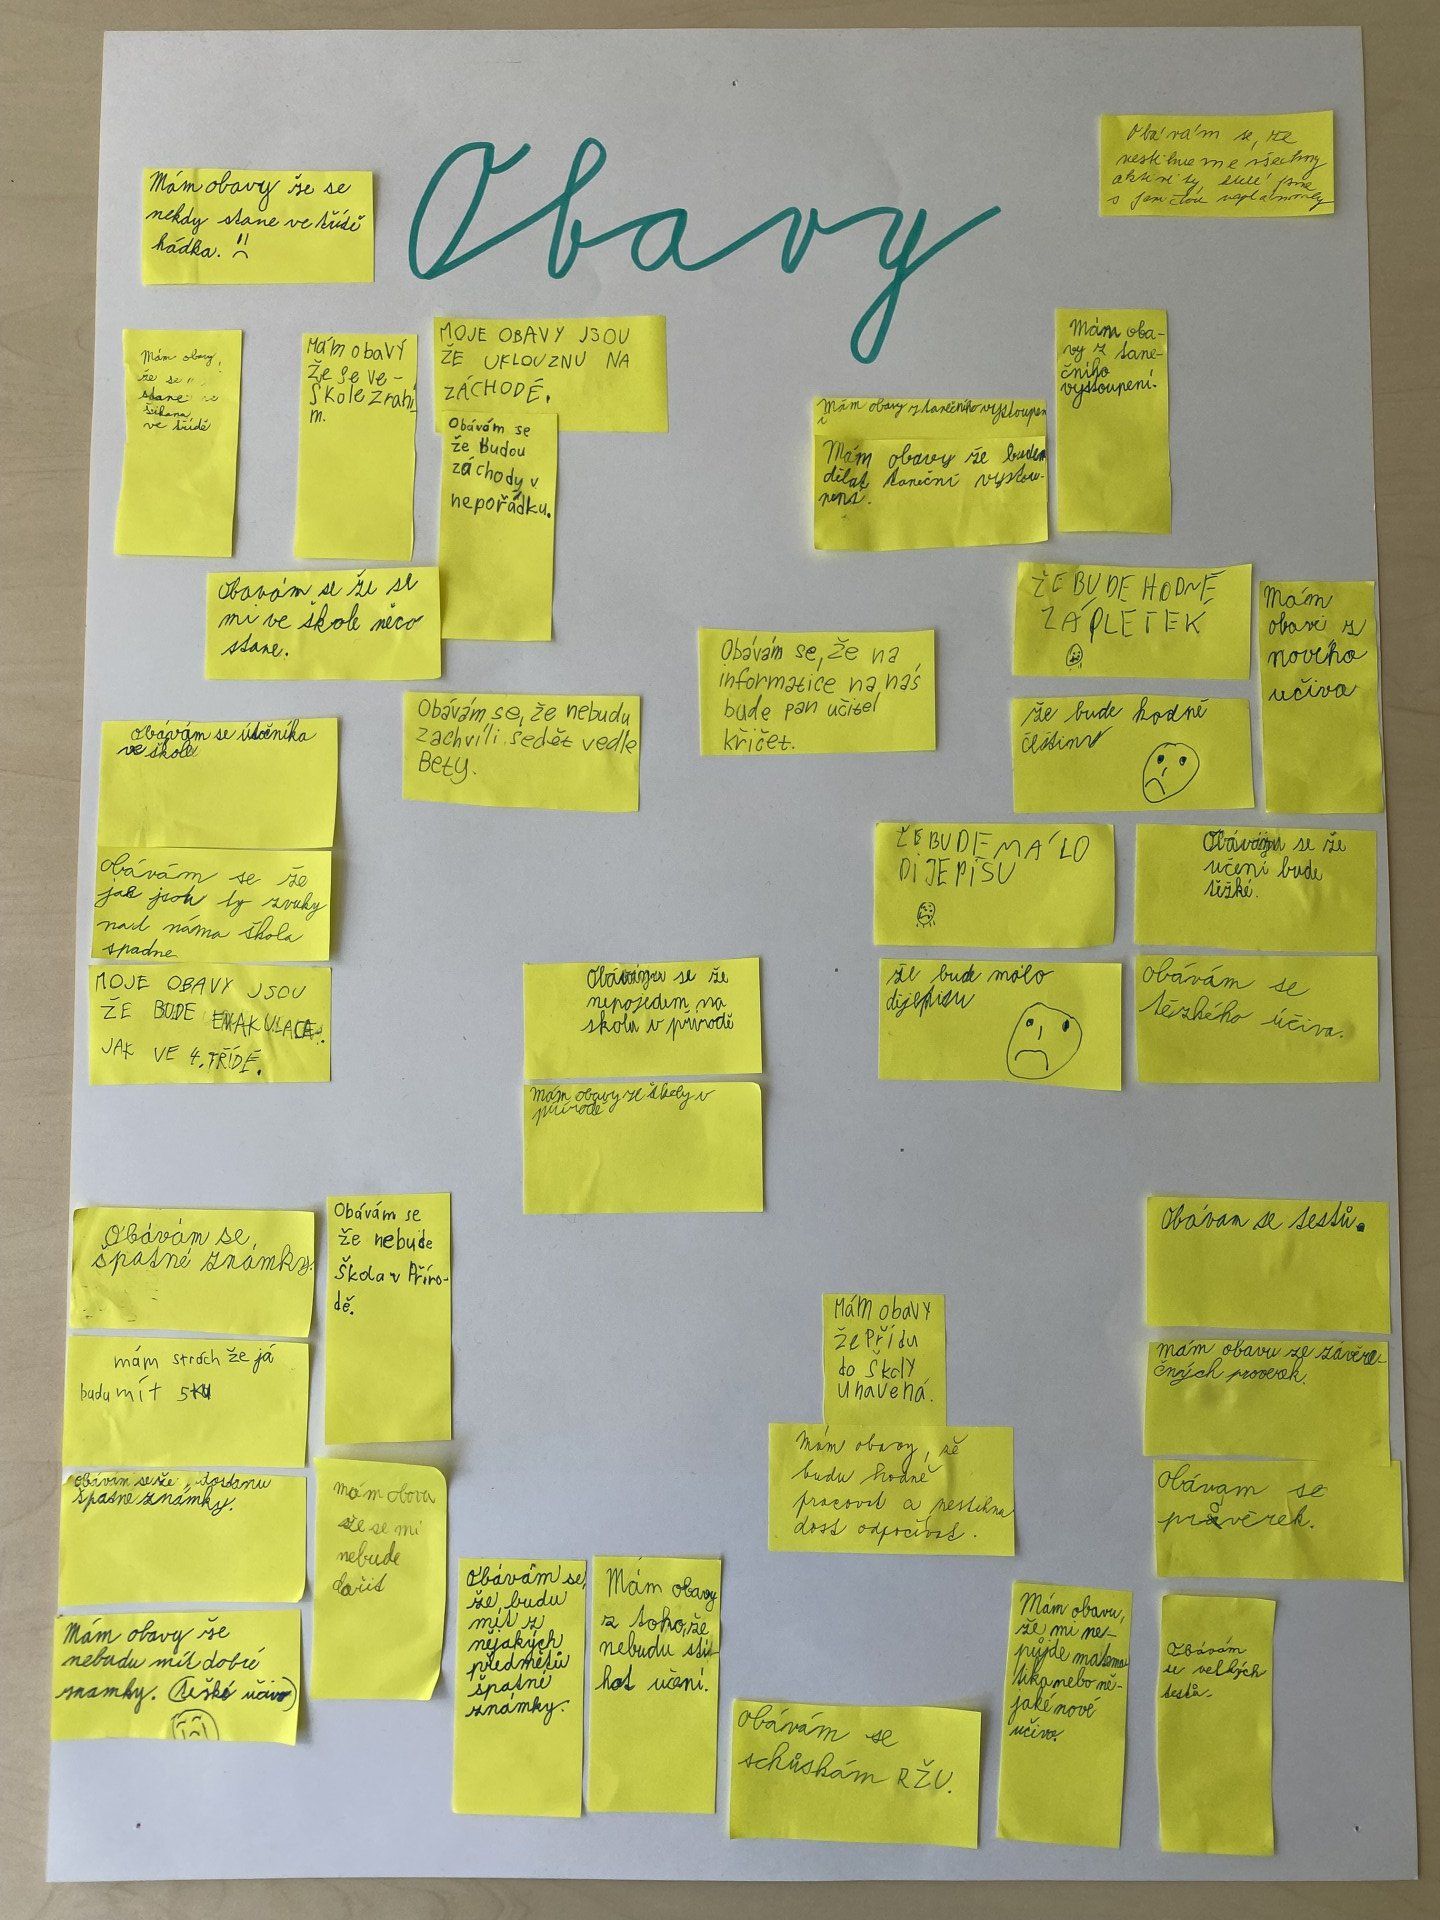 Obavy
Mám obavy že se
nekdy stane ve třídě
hádka.
Obávám se, že
nestihneme všechny
aktivity, které jsme
s
Mám obavy,
že se
stane
šikana
ve třídě
Mám obavý
že se ve-
škole zraní
m.
MOJE OBAVY JSOU
ŽE UKLOUZNU NA
ZÁCHODĚ.
Obávám se
že budou
záchody v
nepořádku.
Mám oba-
vy z tane-
čního
vystoupení.
Mám obavy z tanečního vystoupen
í
Mám obavy že budem
dělat taneční vystou-
pení.
Obavám se že se
mi ve škole něco
stane.
ŽE BUDE HODNĚ
ZÁPLETEK
Mám
obavi z
nového
učiva
Obávám se, že na
informatice na nás
bude pan učitel
křičet.
Obávám se, že nebudu
zachvíli sedět vedle
Bety.
že bude hodně
češtiny
obávám se útočníka
ve škole
Obávám se že
jak jsou ty zvuky
nad náma škola
spadne
MOJE OBAVY JSOU
ŽE BUDE
JAK VE 4. TŘÍDĚ.
ŽE BUDE MÁLO
DIJEPISU
Obávám se že
učení bude
těžké.
Obávám se že
nepojedem na
školu v přírodě
že bude málo
dijepisu
obávám se
těžkého účiva.
Mám obavy ze školy v
přírodě
Obávám se,
špatné známky.
Obávám se
že nebude
škola v Příro-
dě.
Obávam se testů.
mám strach že já
budu mít 5ku
Mám obavy
že Přídu
do školy
unavená.
mám obavu ze závěre-
čných prověrek.
obávám se že, dostanu
špatné známky.
mám obavu
že se mi
nebude
dařit
Mám obavy, že
budu hodně
pracovat a nestihnu
dost odpočívat.
obávam se
prověrek.
Mám obavy že
nebudu mít dobré
znamky. (težké učivo)
Obávám se,
že, budu
mít z
nějakých
předmětů
špatné
známky.
Mám obavy
z toho, že
nebudu stí-
hat učení.
obávám se
schůskám RŽU.
Mám obavu,
že mi ne-
půjde matema
tika nebo ně-
jaké nové
učivo.
Obávám
se velkých
testů.